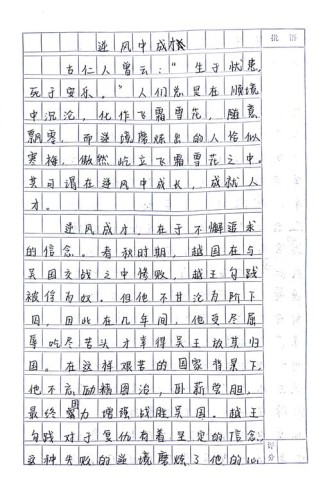 批语
逆风中成才
古仁人曾云：“生于忧患，
死于安乐。”人们总是在顺境
中沉沦，化作飞霜雪花，随意
飘零，而逆境磨炼出的人恰似
寒梅，傲然屹立飞霜雪花之中。
其可谓在逆风中成长，成就人
才。
逆风成才，在于不懈追求
的信念。春秋时期，越国在与
吴国交战之中惨败，越王勾践
被俘为奴。但他不甘沦为阶下
囚，因此在几年间，他受尽屈
辱吃尽苦头才幸得吴王放其归
国。在这样艰苦的国家背景下，
他不忘励精图治，卧薪尝胆，
最终努力增强战胜吴国。越王
勾践对于复仇有着坚定的信念，
这种失败的逆境磨炼了他的心
评分